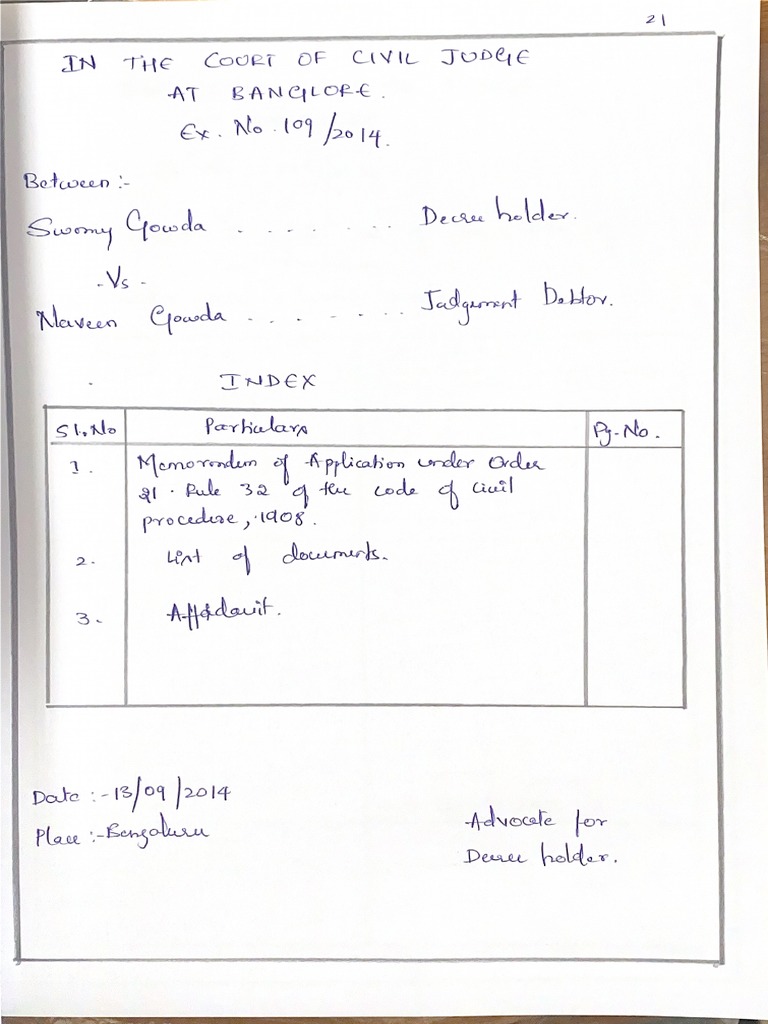 21
IN THE COURT OF CIVIL JUDGE
AT BANGLORE.
Ex. No. 109/2014.
Between :-
Swomy Gowda . . . . . . . . Decree holder.
- Vs -
Naveen Gowda . . . . . . . . Judgement Debtor.
INDEX
Sl.No Particulars Pg.No.
1. Memorandum of Application under Order
21. Rule 32 of the code of Civil
procedure, 1908.
2. List of documents.
3. Affidavit.
Date :- 13/09/2014
Place :- Bengaluru
Advocate for
Decree holder.